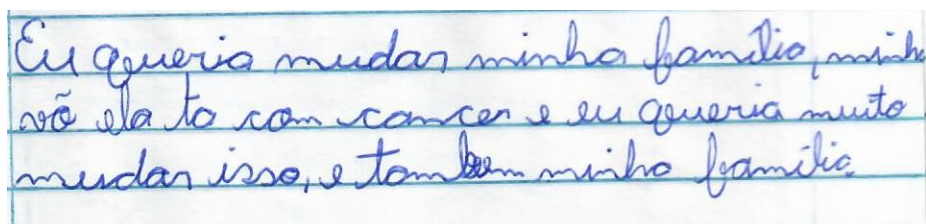 Eu queria mudar minha família, minh
võ ela ta com cancer e eu queria muito
mudar isso, e tambem minha família